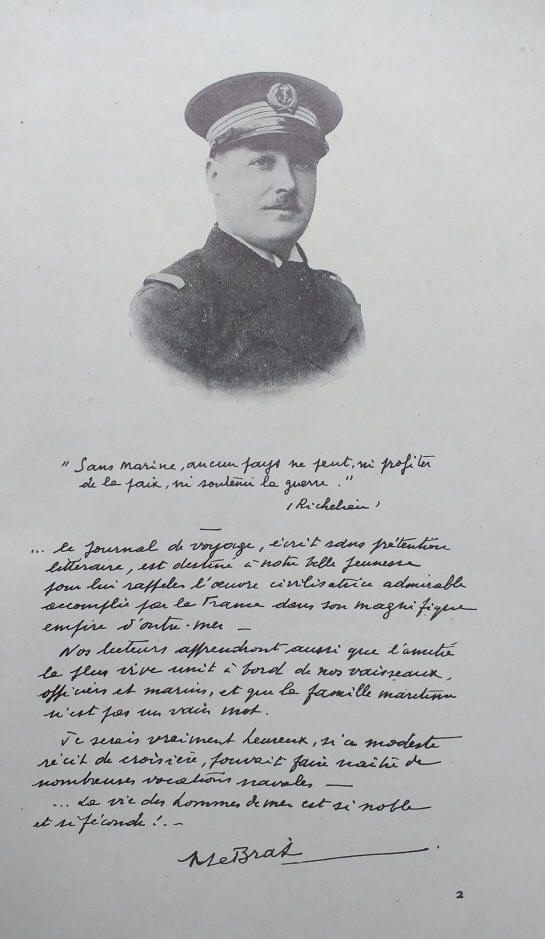 " Sans Marine, aucun pays ne peut, ni profiter
de la paix, ni soutenir la guerre . "
( Richelieu )
... le Journal de voyage, écrit sans prétention
littéraire, est destiné à notre belle Jeunesse
pour lui rappeler l'œuvre civilisatrice admirable
accomplie par la France dans son magnifique
empire d'outre-mer —
Nos lecteurs apprendront aussi que l'amitié
la plus vive unit à bord de nos vaisseaux,
officiers et marins, et que la famille maritime
n'est pas un vain mot.
Je serais vraiment heureux, si ce modeste
récit de croisière, pouvait faire naître de
nombreuses vocations navales —
... La vie des hommes de mer est si noble
et si féconde ! . —
Le Bras
2